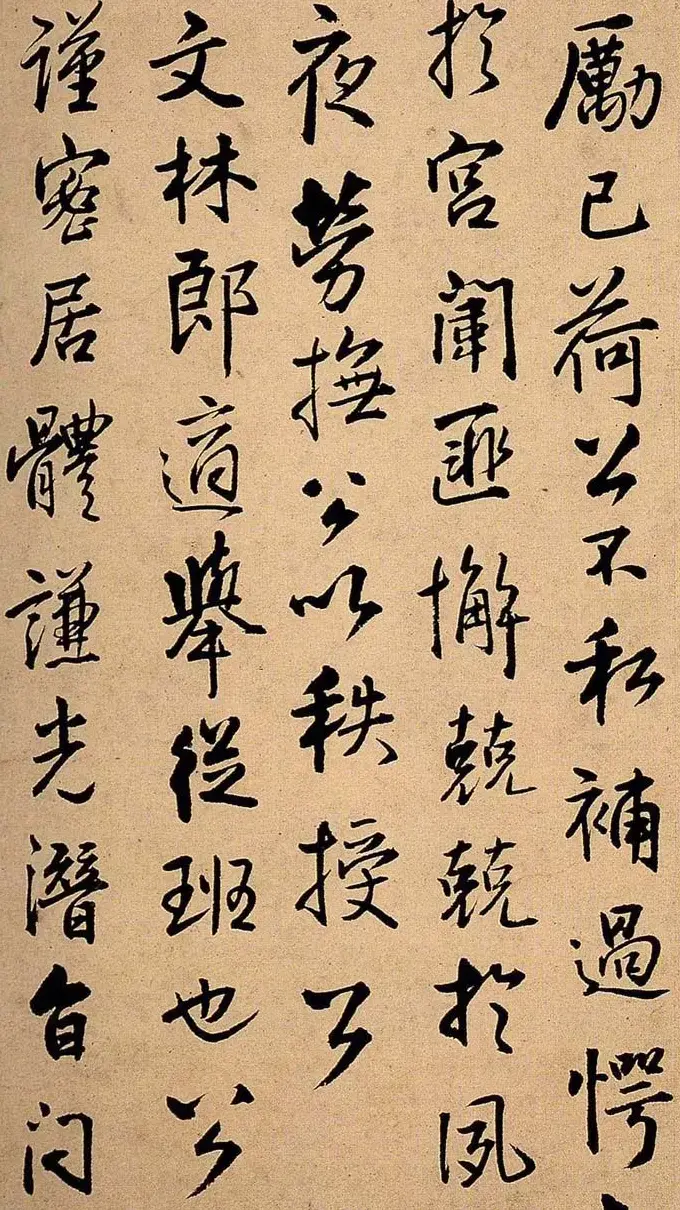 勵己荷公不私補過愕
於宮闈匪懈兢兢於夙
夜勞撫公以秩授公
文林郎適舉從班也公
謹密居體謙光潛自闪